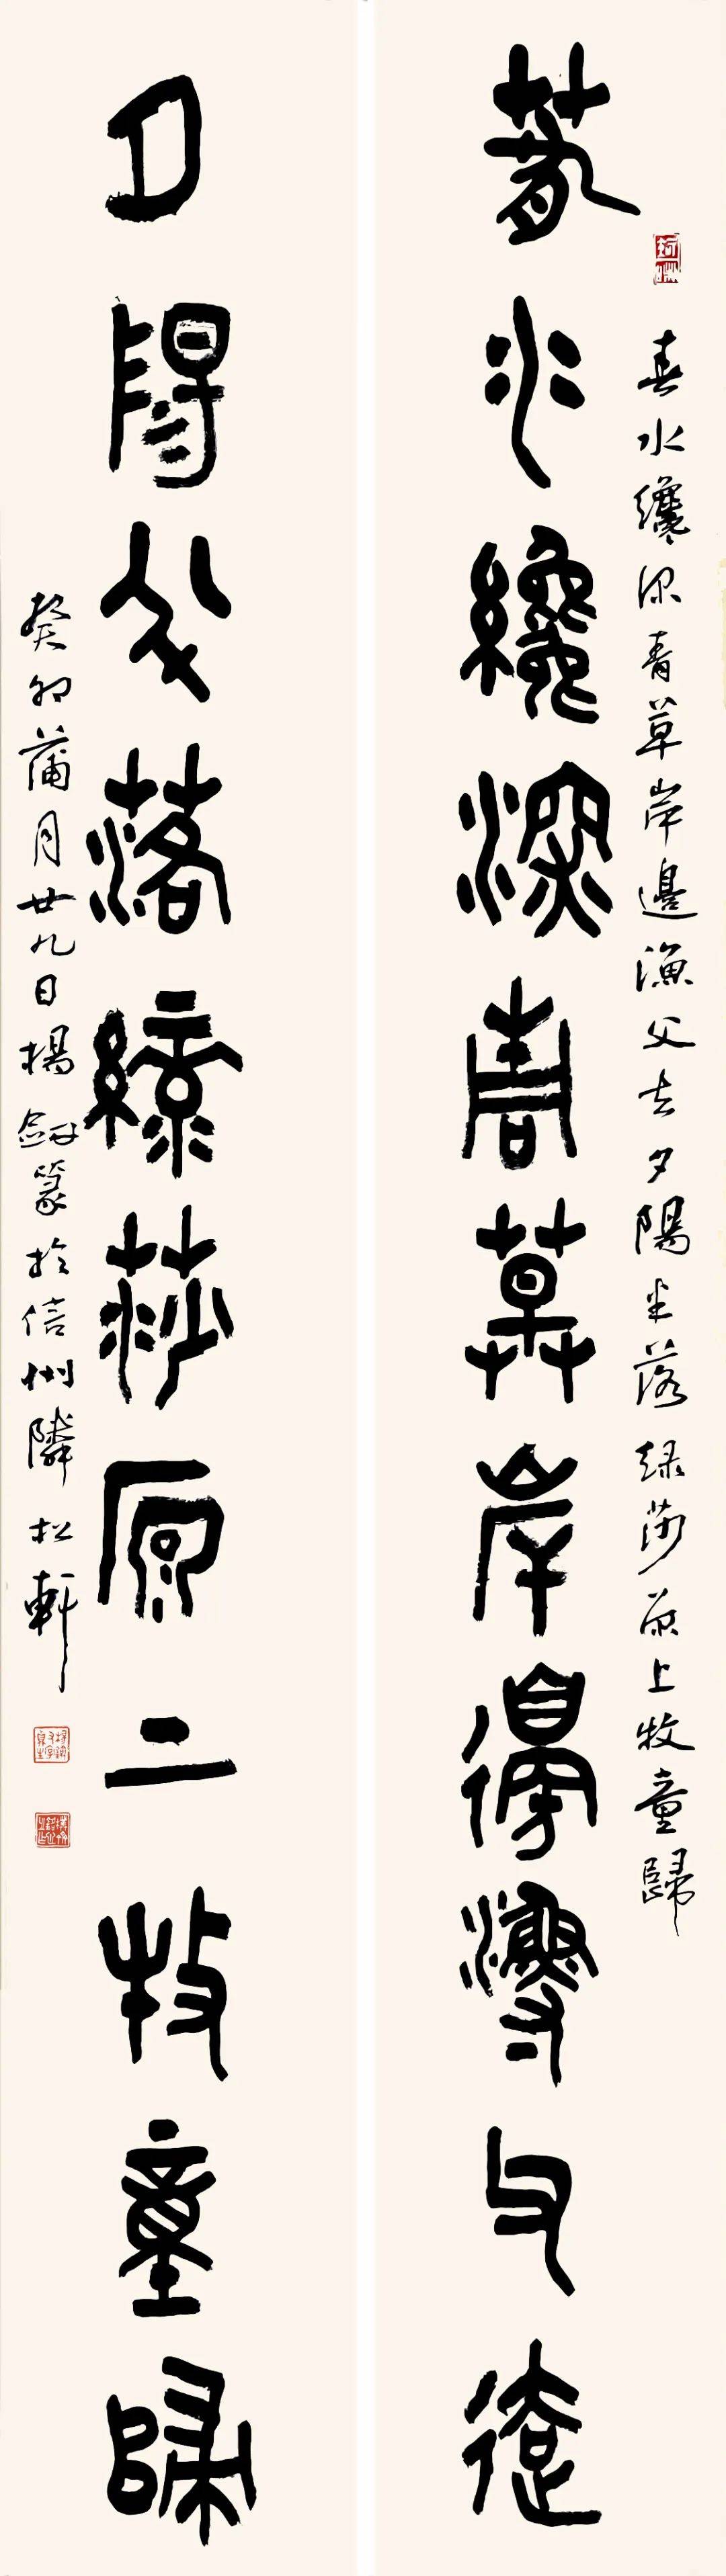 春水纔深青草岸邊漁父去夕陽半落綠莎原上牧童歸
春水纔深青草岸邊漁父去
夕陽半落綠莎原上牧童歸
癸卯蒲月廿九日楊劍篆於信州隣松軒